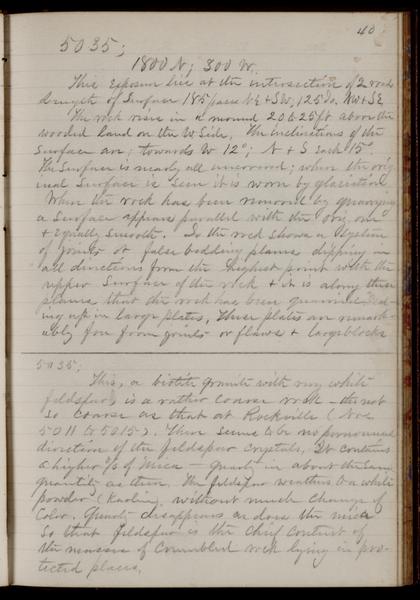 40
5035;
1800 N; 300 W.
This exposure lies at the intersection of 2 roads
Length of Surface 185 paces NE & SW, 125 do. NW & SE
The rock rises in a mound 20 to 25 ft above the
wooded land on the W side. The inclinations of the
surface are; towards W 12°; N & S each 15°.
The surface is nearly all uncovered; where the orig-
inal surface is seen it is worn by glaciation
When the rock has been removed by quarrying
a surface appears parallel with the orig. one
& equally smooth. So the rock shows a system
of joints or false bedding planes dipping in
all directions from the highest point with the
upper surface of the rock & it is along these
planes that the rock has been quarried
ing up in large plates, These plates are remark-
ably free from joints or flaws & large blocks
5035;
This, a biotite granite with very white
feldspar, is a rather coarse rock — tho not
so coarse as that at Rockville (Nos.
5011 to 5015). There seems to be no pronounced
direction of the feldspar crystals. It contains
a higher % of mica — quartz in about the same
quantity as there. The feldspar weathers to a white
powder (Kaolin), without much change of
color. Quartz disappears as does the mica
so that feldspar is the chief content of
the masses of crumbled rock lying in pro-
tected places.